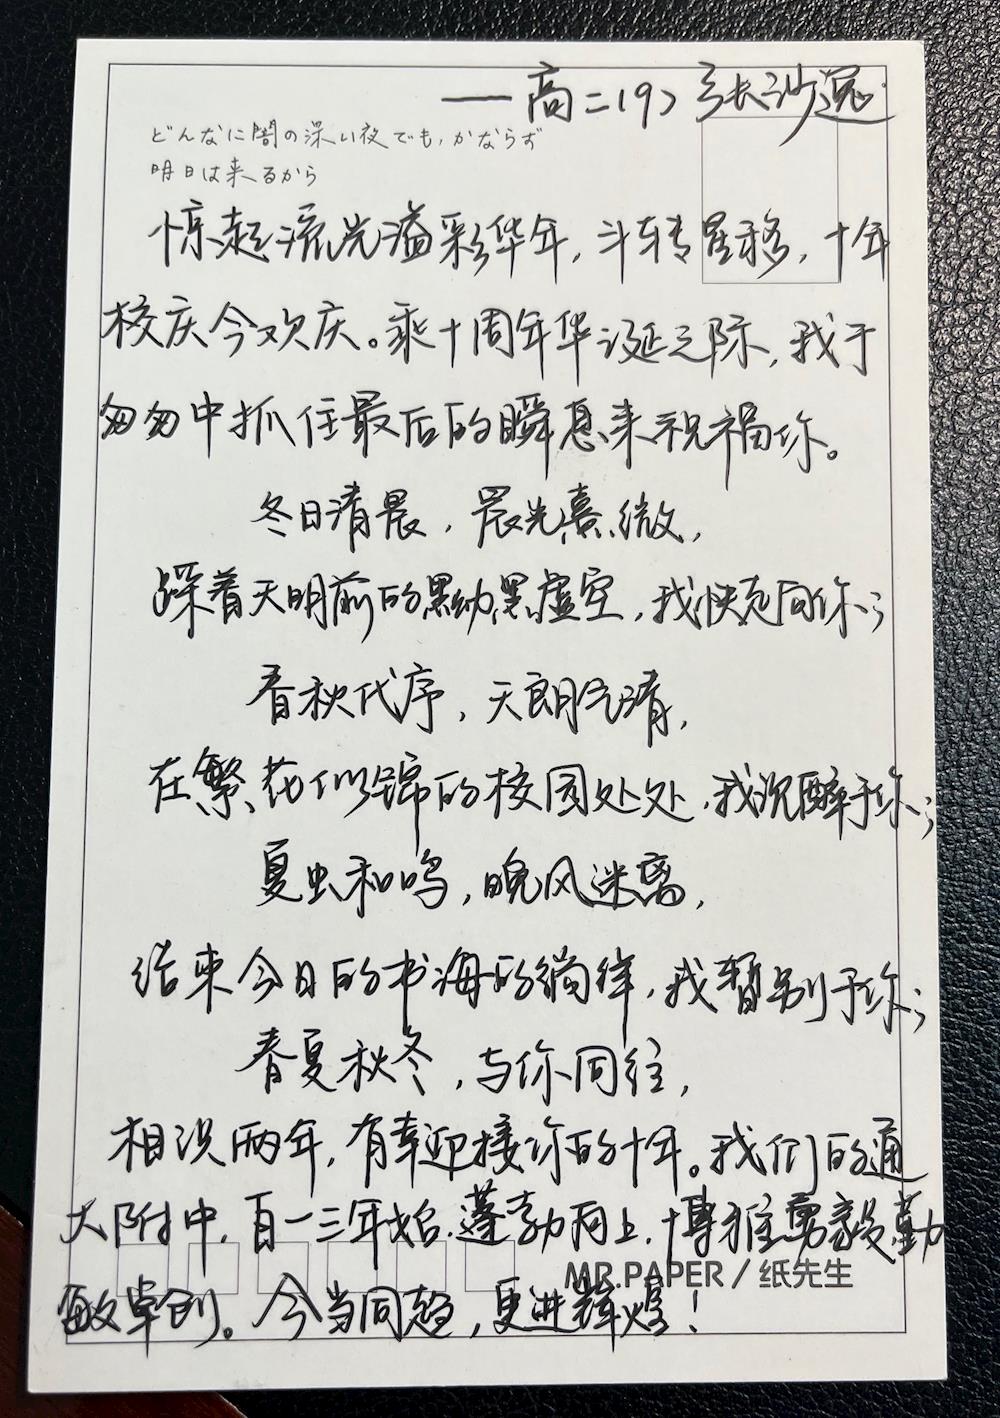 ——高二(9) 张沙逸
どんなに闇の深い夜でも，かならず
明日は来るから
惊起流光溢彩华年，斗转星移，十年
校庆今欢庆。乘十周年华诞之际，我于
匆匆中抓住最后的瞬息来祝福你。
冬日清晨，晨光熹微，
踩着天明前的黑黝黑虚空，我快走向你；
春秋代序，天朗气清，
在繁花似锦的校园处处，我沉醉于你；
夏虫和鸣，晚风迷离，
结束今日的书海的徜徉，我暂别于你；
春夏秋冬，与你同往，
相识两年，有幸迎接你的十年。我们的通
大附中，自一三年始，蓬勃向上，博雅勇毅勤
敏卓创。今当同趋，更进辉煌！
MR.PAPER / 纸先生